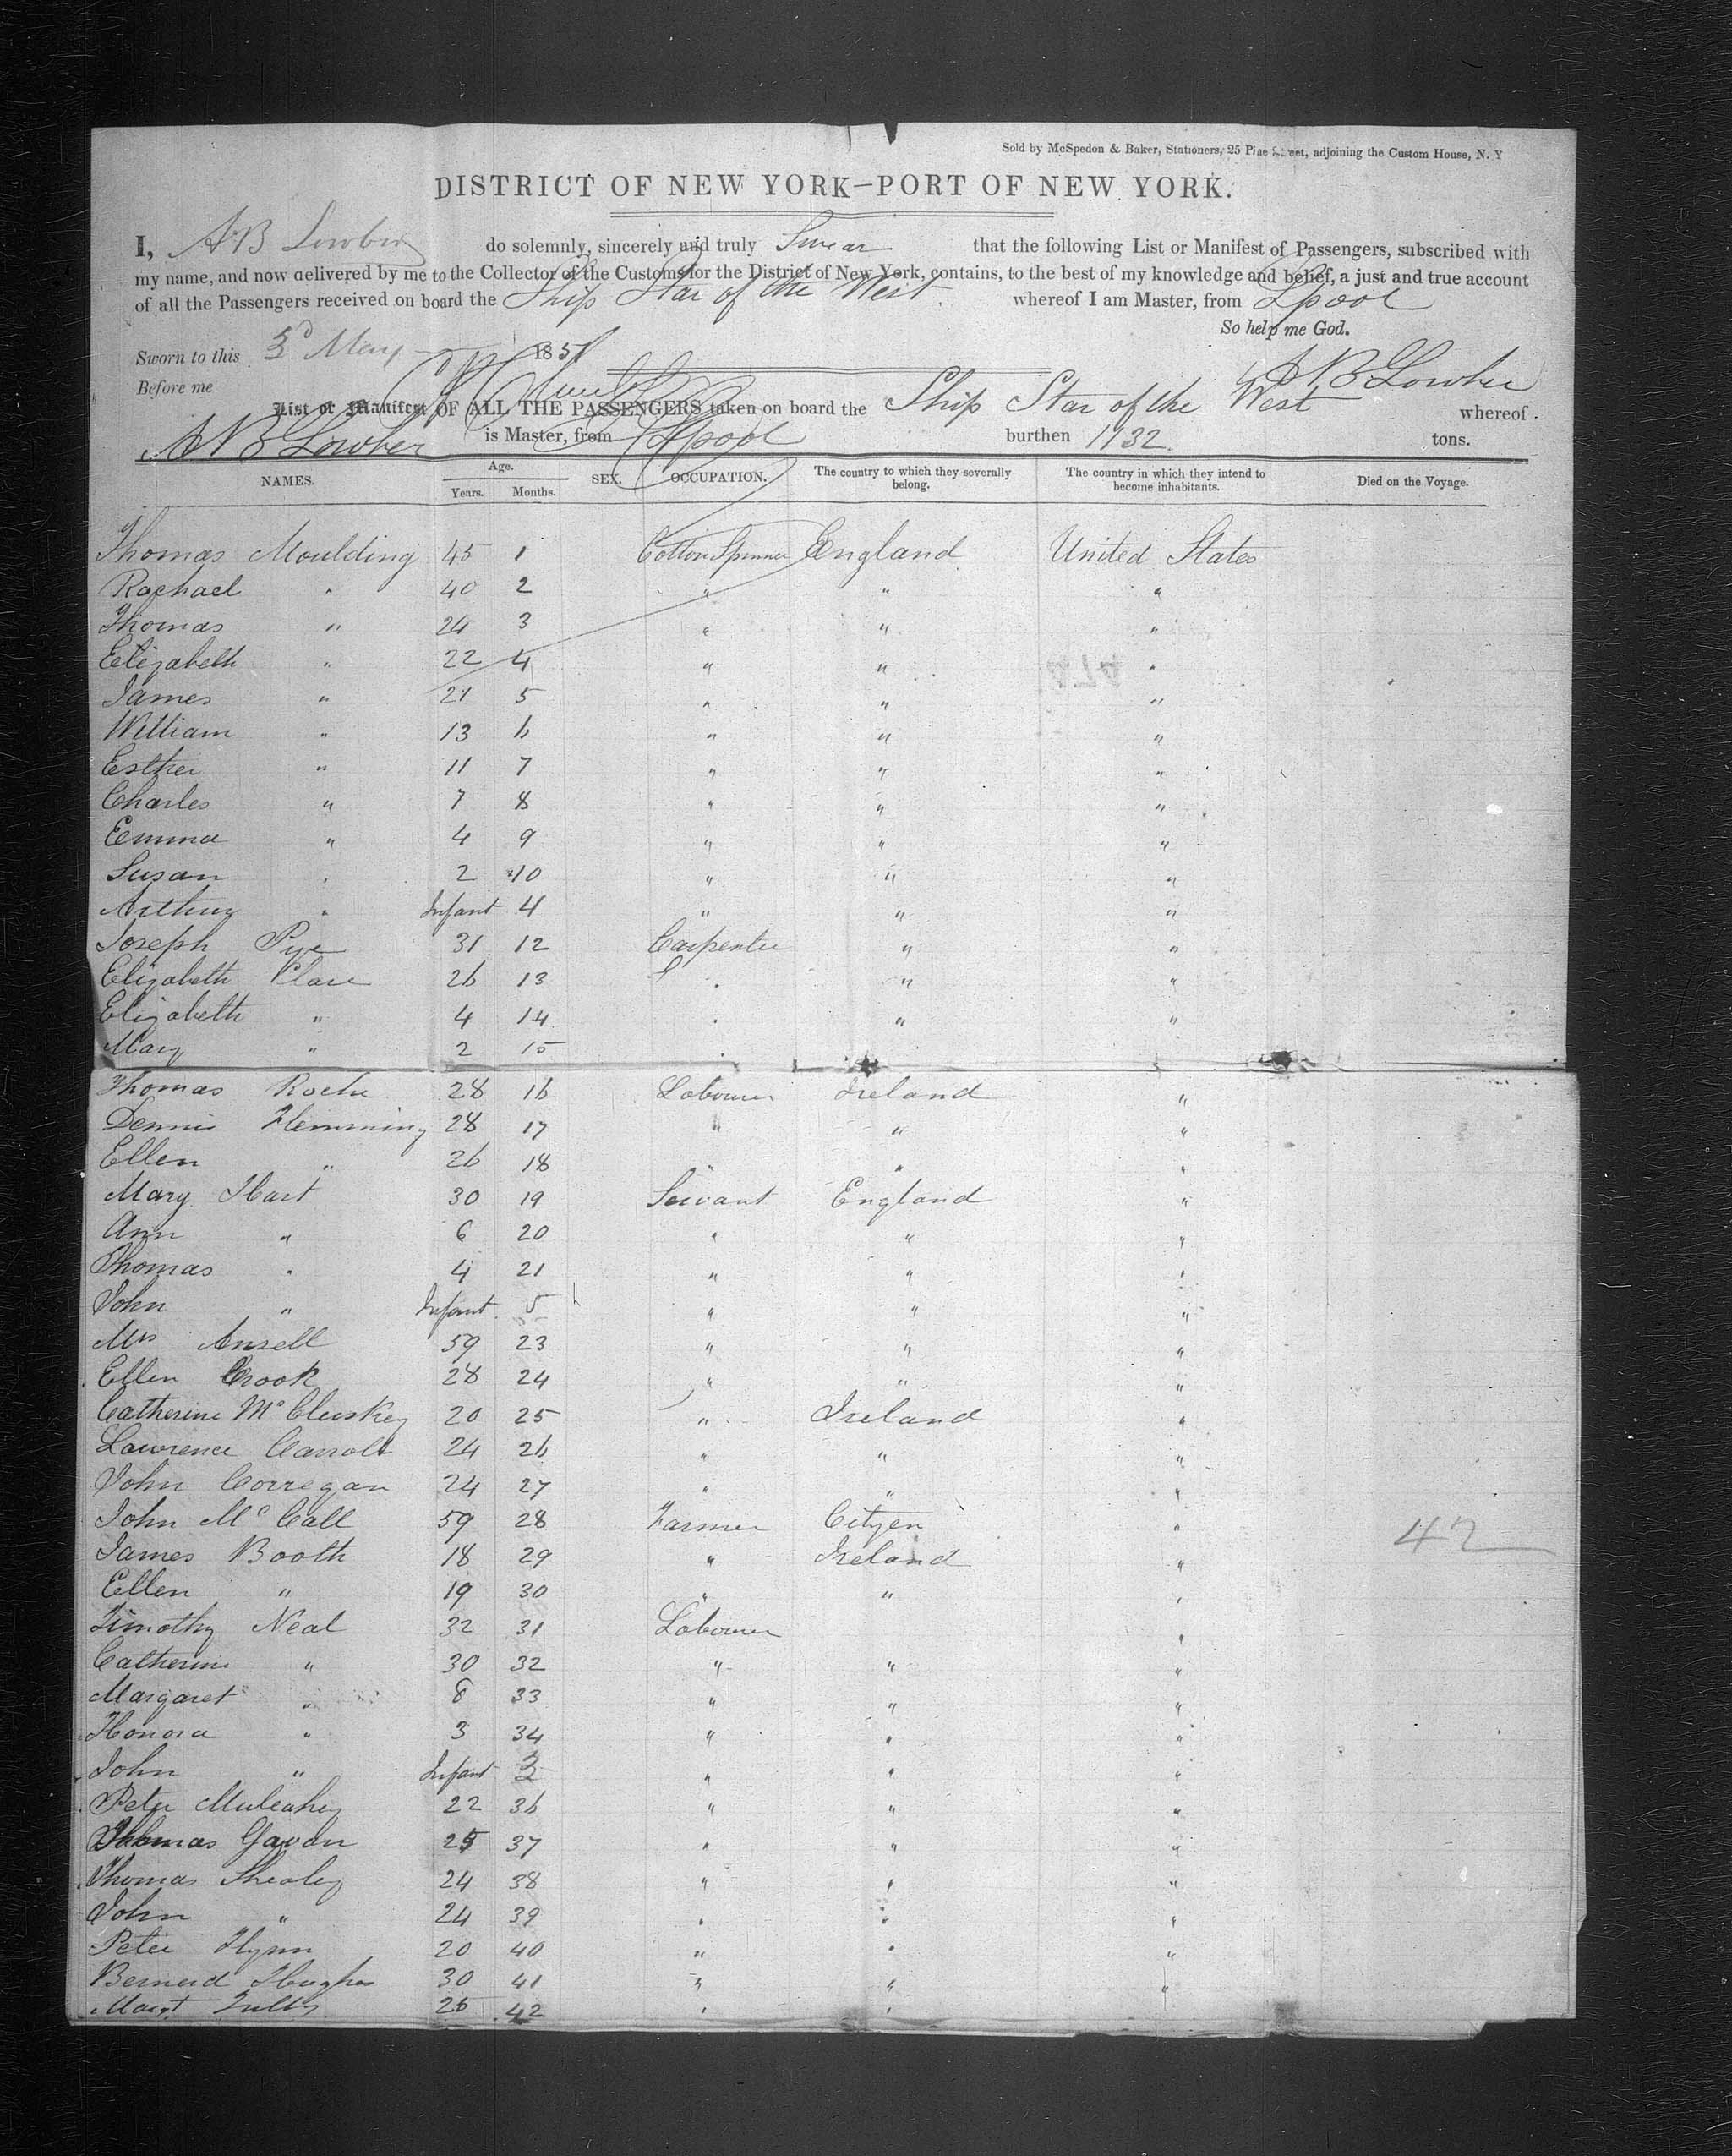 Sold by McSpedon & Baker, Stationers, 25 Pine Street, adjoining the Custom House, N. Y
DISTRICT OF NEW YORK–PORT OF NEW YORK.
I, A B Lowber do solemnly, sincerely and truly Swear that the following List or Manifest of Passengers, subscribed with
my name, and now delivered by me to the Collector of the Customs for the District of New York, contains, to the best of my knowledge and belief, a just and true account
of all the Passengers received on board the Ship Star of the West. whereof I am Master, from Lpool
So help me God.
Sworn to this 3d May 1851
Before me A B Lowber
List or Manifest OF ALL THE PASSENGERS taken on board the Ship Star of the West whereof
A B Lowber is Master, from Lpool burthen 1132 tons.
NAMES. Age. Years. Months. SEX. OCCUPATION. The country to which they severally belong. The country in which they intend to become inhabitants. Died on the Voyage.
Thomas Moulding 45 1 Cotton Spinner England United States
Rachael " 40 2 " " "
Thomas " 24 3 " " "
Elizabeth " 22 4 " " "
James " 21 5 " " "
William " 13 6 " " "
Esther " 11 7 " " "
Charles " 7 8 " " "
Emma " 4 9 " " "
Susan " 2 10 " " "
Arthur " Infant 4 " " "
Joseph Pye 31 12 Carpenter " "
Elizabeth Clare 26 13 " "
Elizabeth " 4 14 " " "
Mary " 2 15
Thomas Roche 28 16 Labourer Ireland "
Dennis Flemming 28 17 " " "
Ellen " 26 18 " " "
Mary Hart 30 19 Servant England "
Ann " 6 20 " " "
Thomas " 4 21 " " "
John " Infant 5 " " "
Mrs Ansell 59 23 " " "
Ellen Crook 28 24 " " "
Catherine McCluskey 20 25 " Ireland "
Lawrence Carroll 24 26 " " "
John Corregan 24 27 " " "
John McCall 59 28 Farmer Cityen "
James Booth 18 29 " Ireland "
Ellen " 19 30 " " "
Timothy Neal 32 31 Labourer "
Catherine " 30 32 " " "
Margaret " 8 33 " " "
Honora " 3 34 " " "
John " Infant 3 " " "
Peter Mulcahey 22 36 " " "
Thomas Gavan 25 37 " " "
Thomas Shealey 24 38 " " "
John " 24 39 " " "
Peter Flynn 20 40 " " "
Bernard Hughes 30 41 " " "
Margt 25 42 " "
42